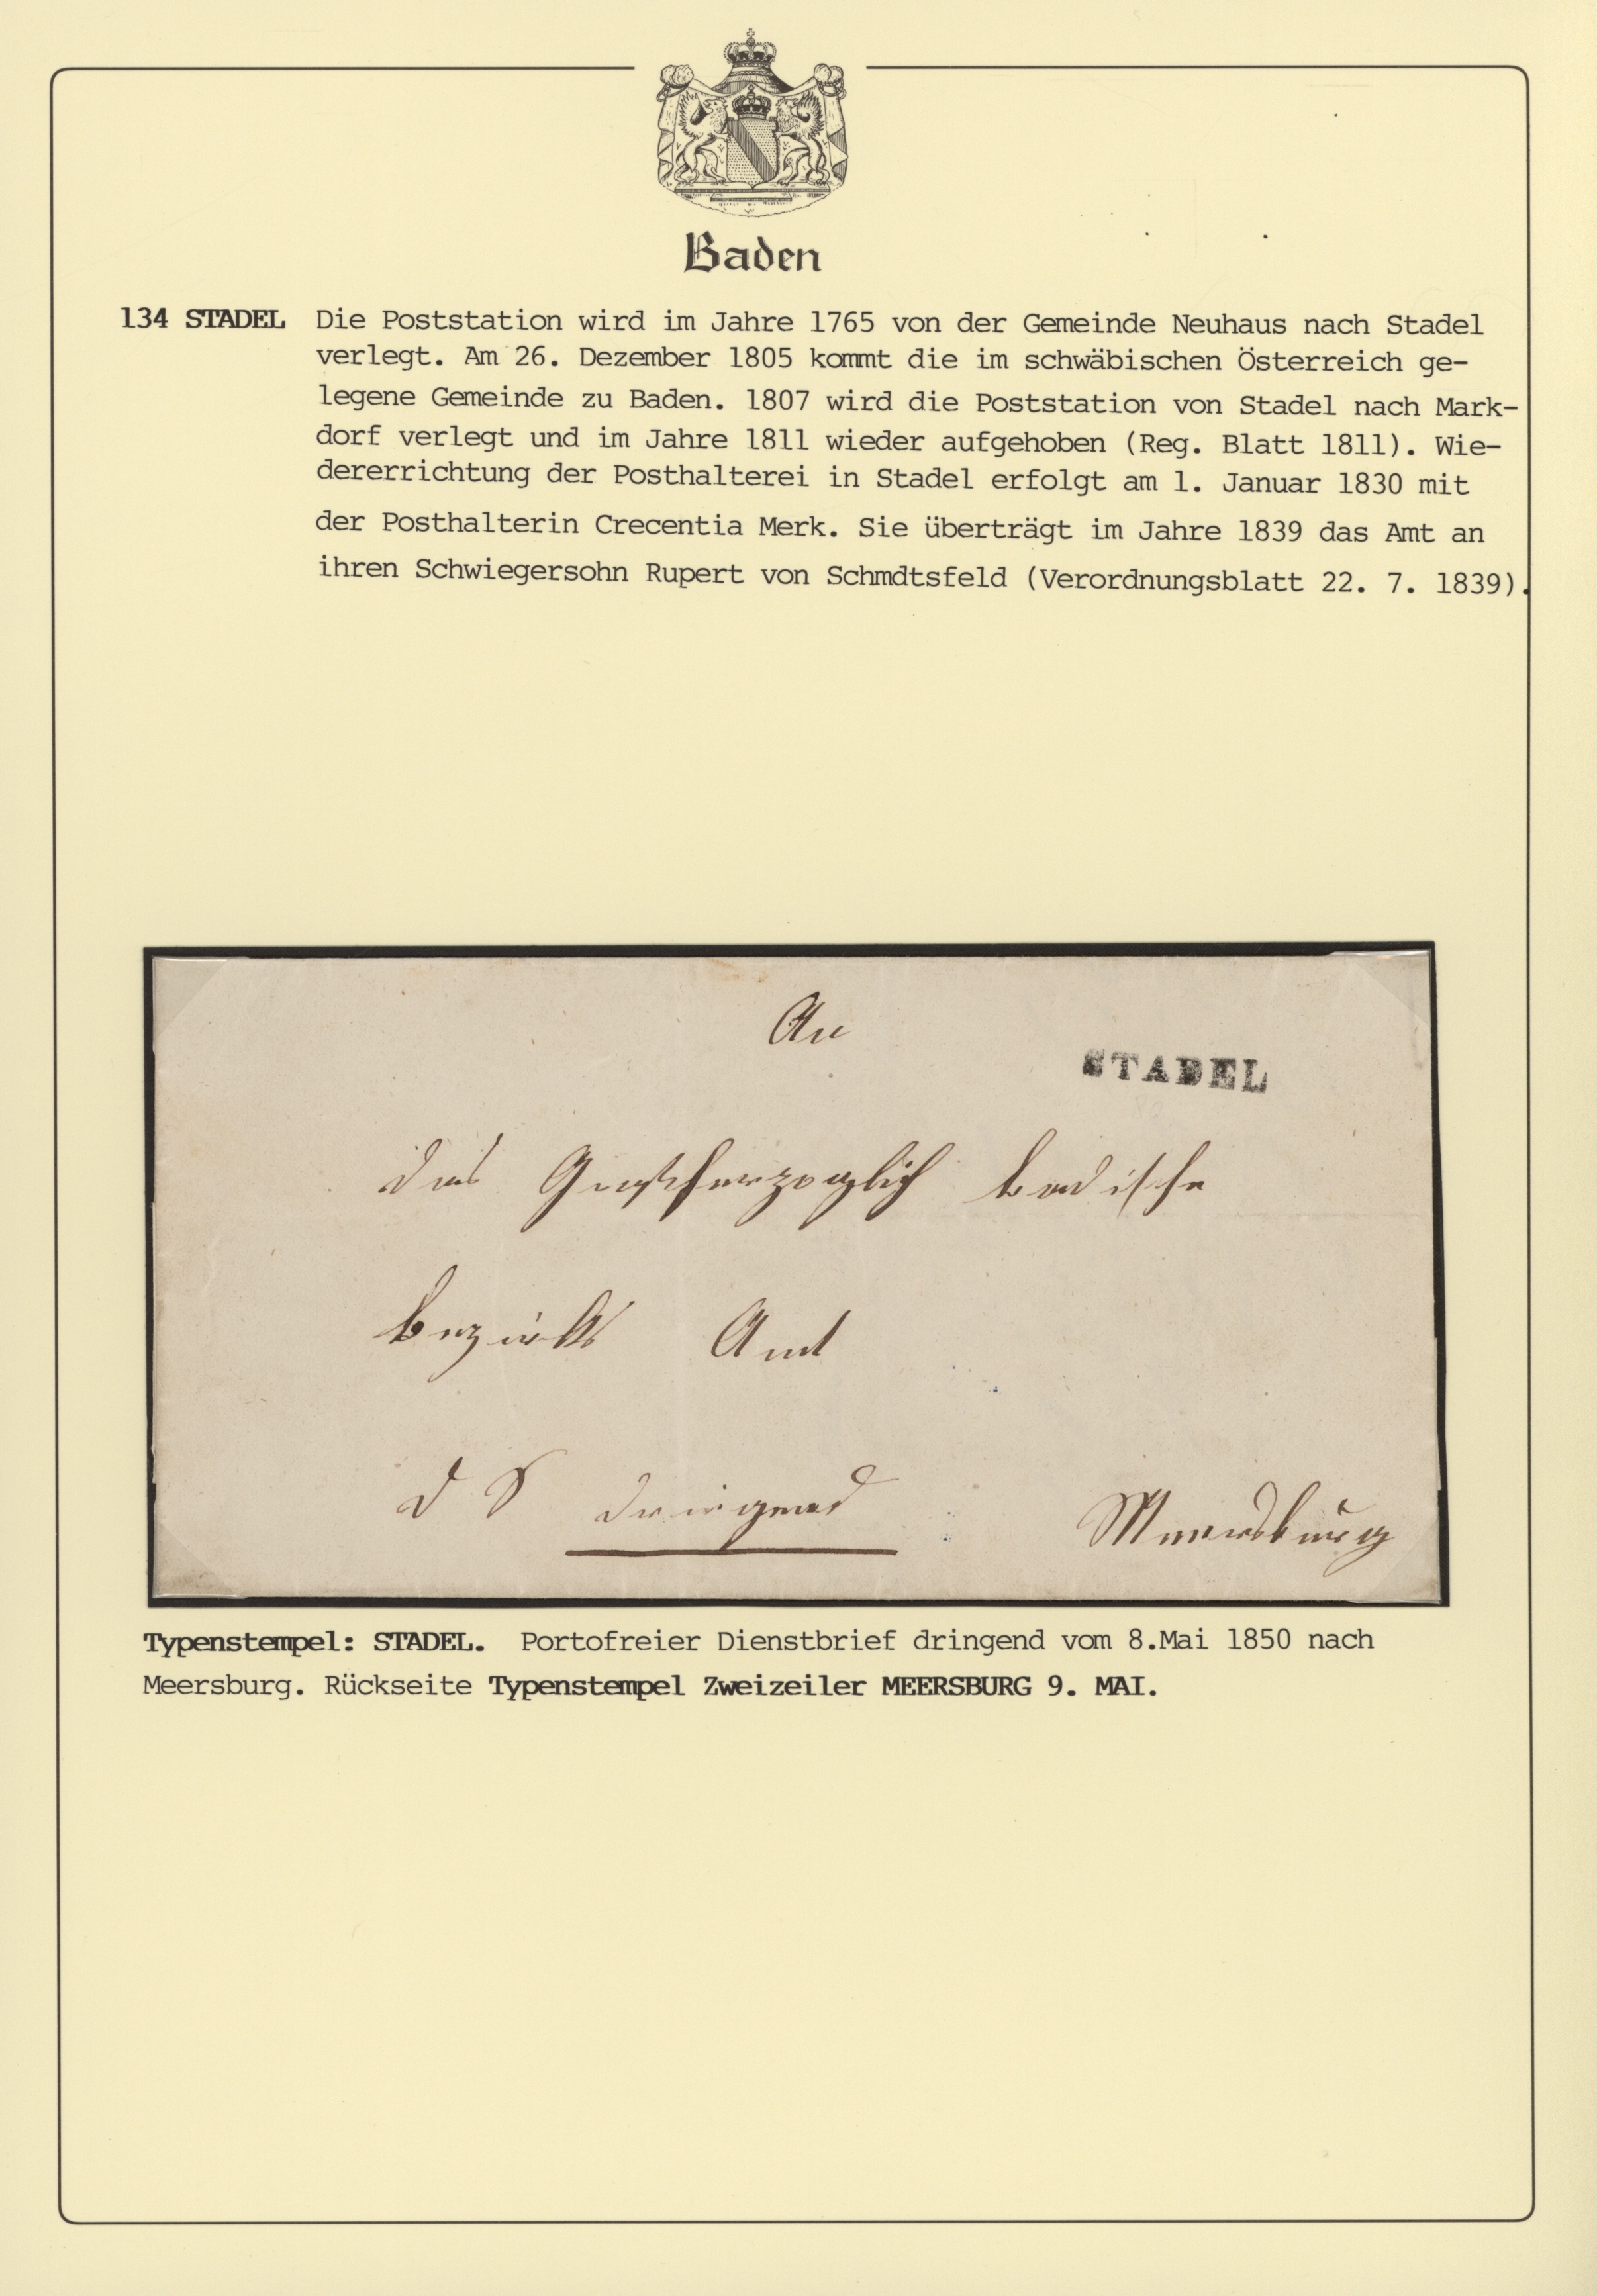 Baden
134 STADEL Die Poststation wird im Jahre 1765 von der Gemeinde Neuhaus nach Stadel
verlegt. Am 26. Dezember 1805 kommt die im schwäbischen Österreich ge-
legene Gemeinde zu Baden. 1807 wird die Poststation von Stadel nach Mark-
dorf verlegt und im Jahre 1811 wieder aufgehoben (Reg. Blatt 1811). Wie-
dererrichtung der Posthalterei in Stadel erfolgt am 1. Januar 1830 mit
der Posthalterin Crecentia Merk. Sie überträgt im Jahre 1839 das Amt an
ihren Schwiegersohn Rupert von Schmdtsfeld (Verordnungsblatt 22. 7. 1839).
An
STADEL
das Großherzoglich badische
Bezirks Amt
D S dringend Meersburg
Typenstempel: STADEL. Portofreier Dienstbrief dringend vom 8.Mai 1850 nach
Meersburg. Rückseite Typenstempel Zweizeiler MEERSBURG 9. MAI.